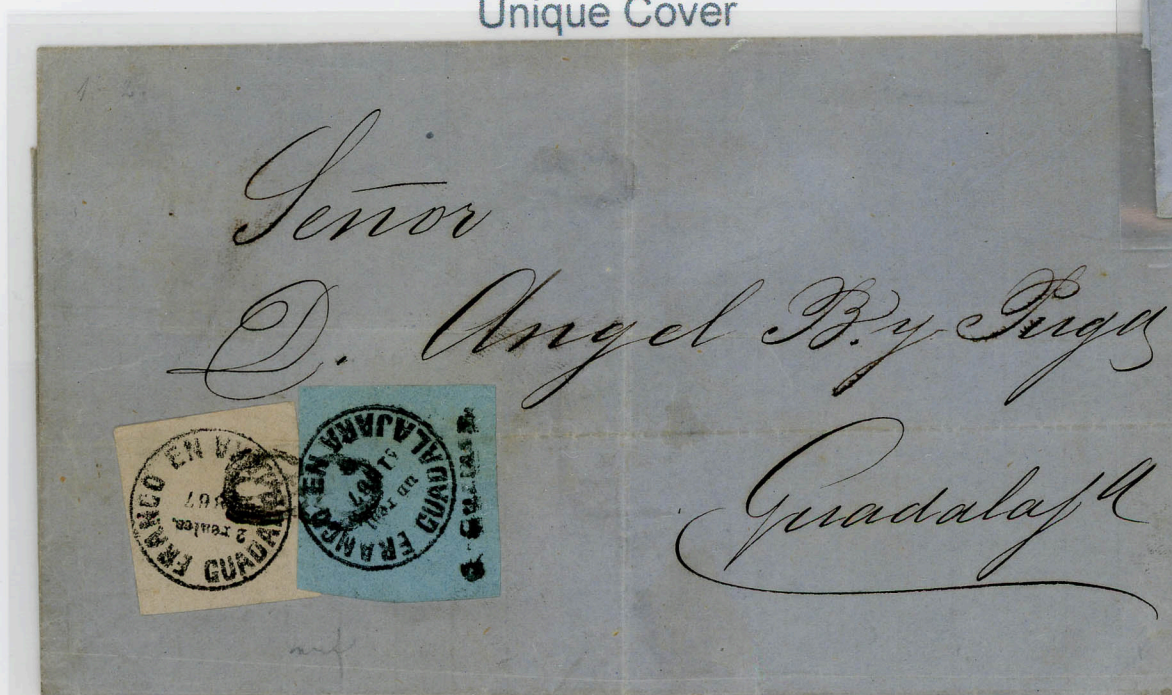 Unique Cover
1-2.
Señor
D. Angel B. y Puga
Guadalaja
FRANCO EN GUADALAJARA
un real
867
FRANCO EN GUADA
2 reales
867